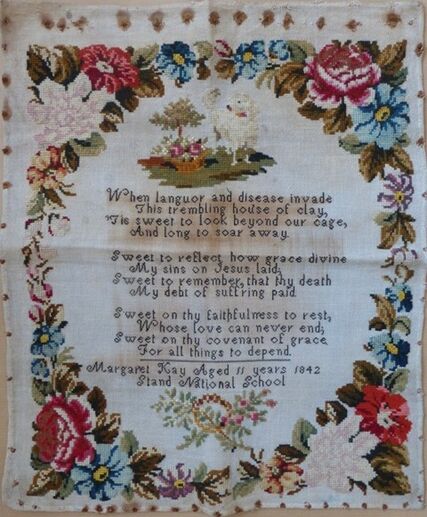 When languor and disease invade
This trembling house of clay,
'Tis sweet to look beyond our cage,
And long to soar away.
Sweet to reflect how grace divine
My sins on Jesus laid;
Sweet to remember, that thy death
My debt of suffring paid
Sweet on thy faithfulness to rest,
Whose love can never end;
Sweet on thy covenant of grace
For all things to depend.
Margaret Kay Aged 11 years 1842
Stand National School